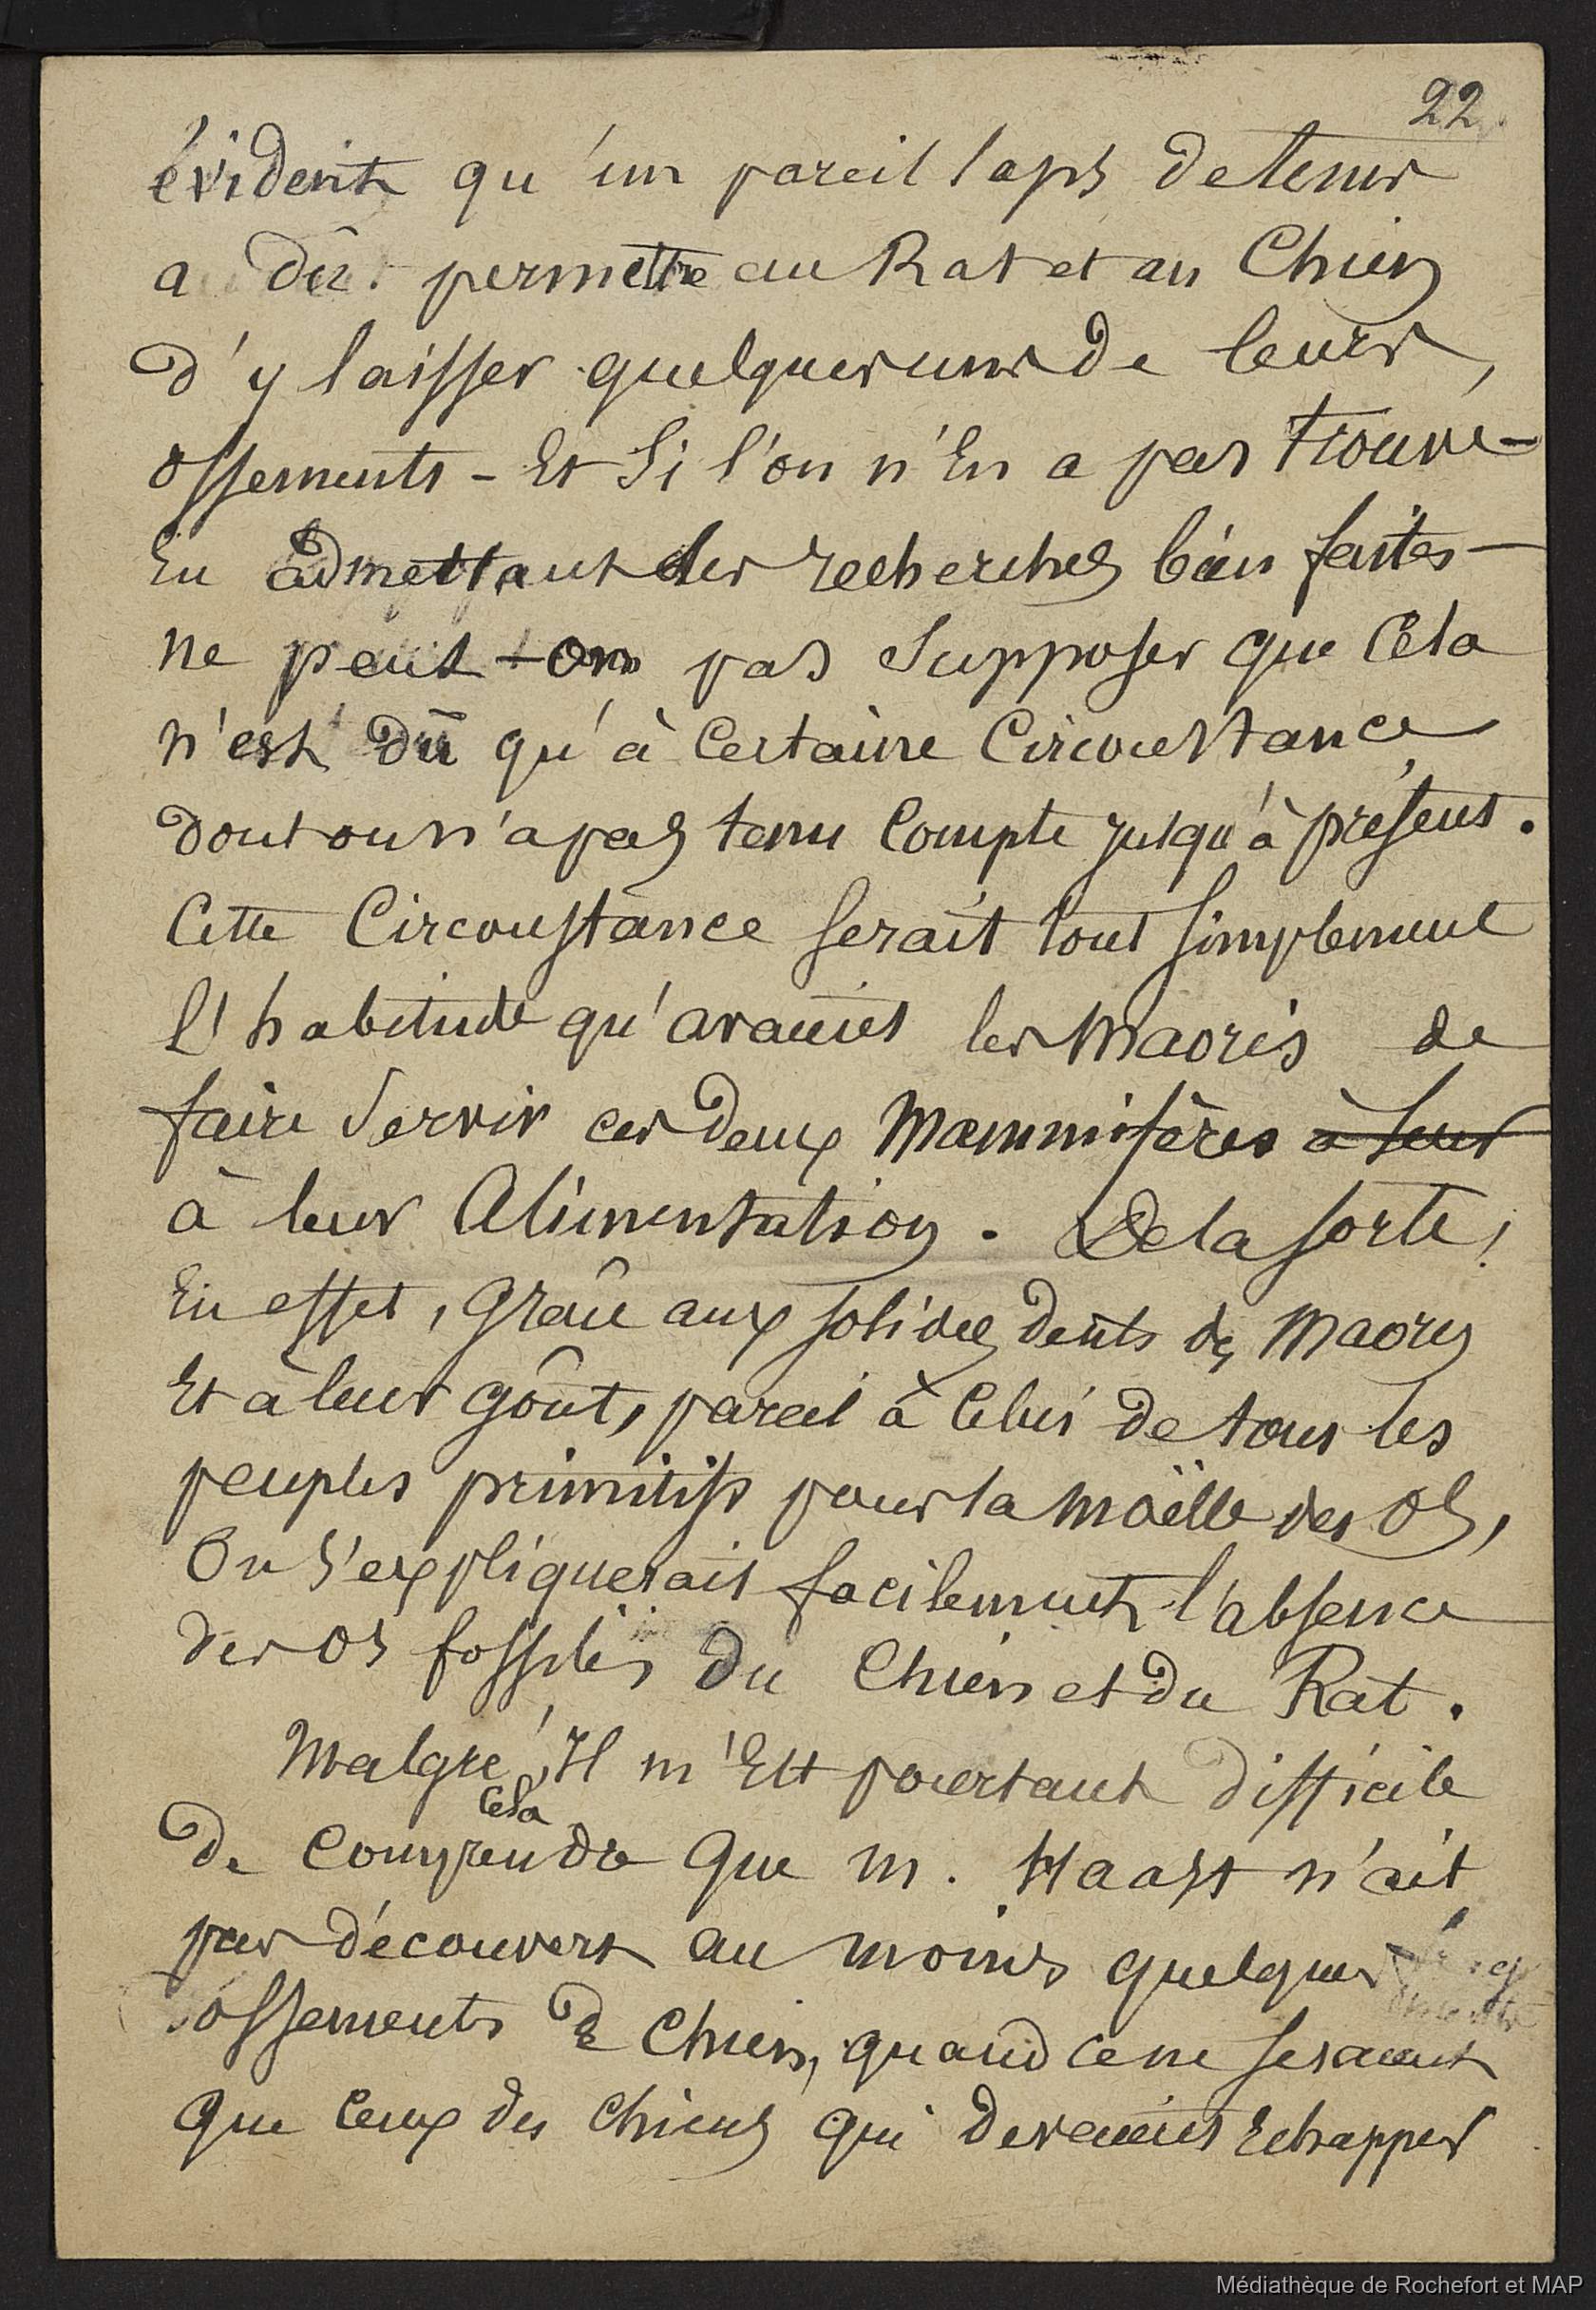 22
évident qu'un pareil laps de tems
a dû permettre au Rat et au Chien
d'y laisser quelques uns de leurs
ossements - Et Si l'on n'En a pas trouvé -
En admettant des recherches bien faites -
ne peut-on pas Supposer que Cela
n'est dû qu'à Certaine Circonstance
dont on n'a pas tenu Compte jusqu'à présent.
Cette Circonstance Serait tout Simplement
l'habitude qu'avaient les Maoris de
faire Servir ces deux Mammifères à leur
à leur Alimentation. De la sorte,
En effet, Grâce aux solides dents des Maoris
Et à leur goût, pareil à Celui de tous les
peuples primitifs pour la moëlle des os,
On s'expliquerait facilement l'absence
des os fossiles du Chien et du Rat.
Malgré, Il m'Est pourtant difficile
Cela
de Comprendre Que M. Haast n'ait
pas découvert au moins quelques
ossements de Chien, quand ce ne seraient
Que Ceux des Chiens Qui devaient Echapper
Médiathèque de Rochefort et MAP